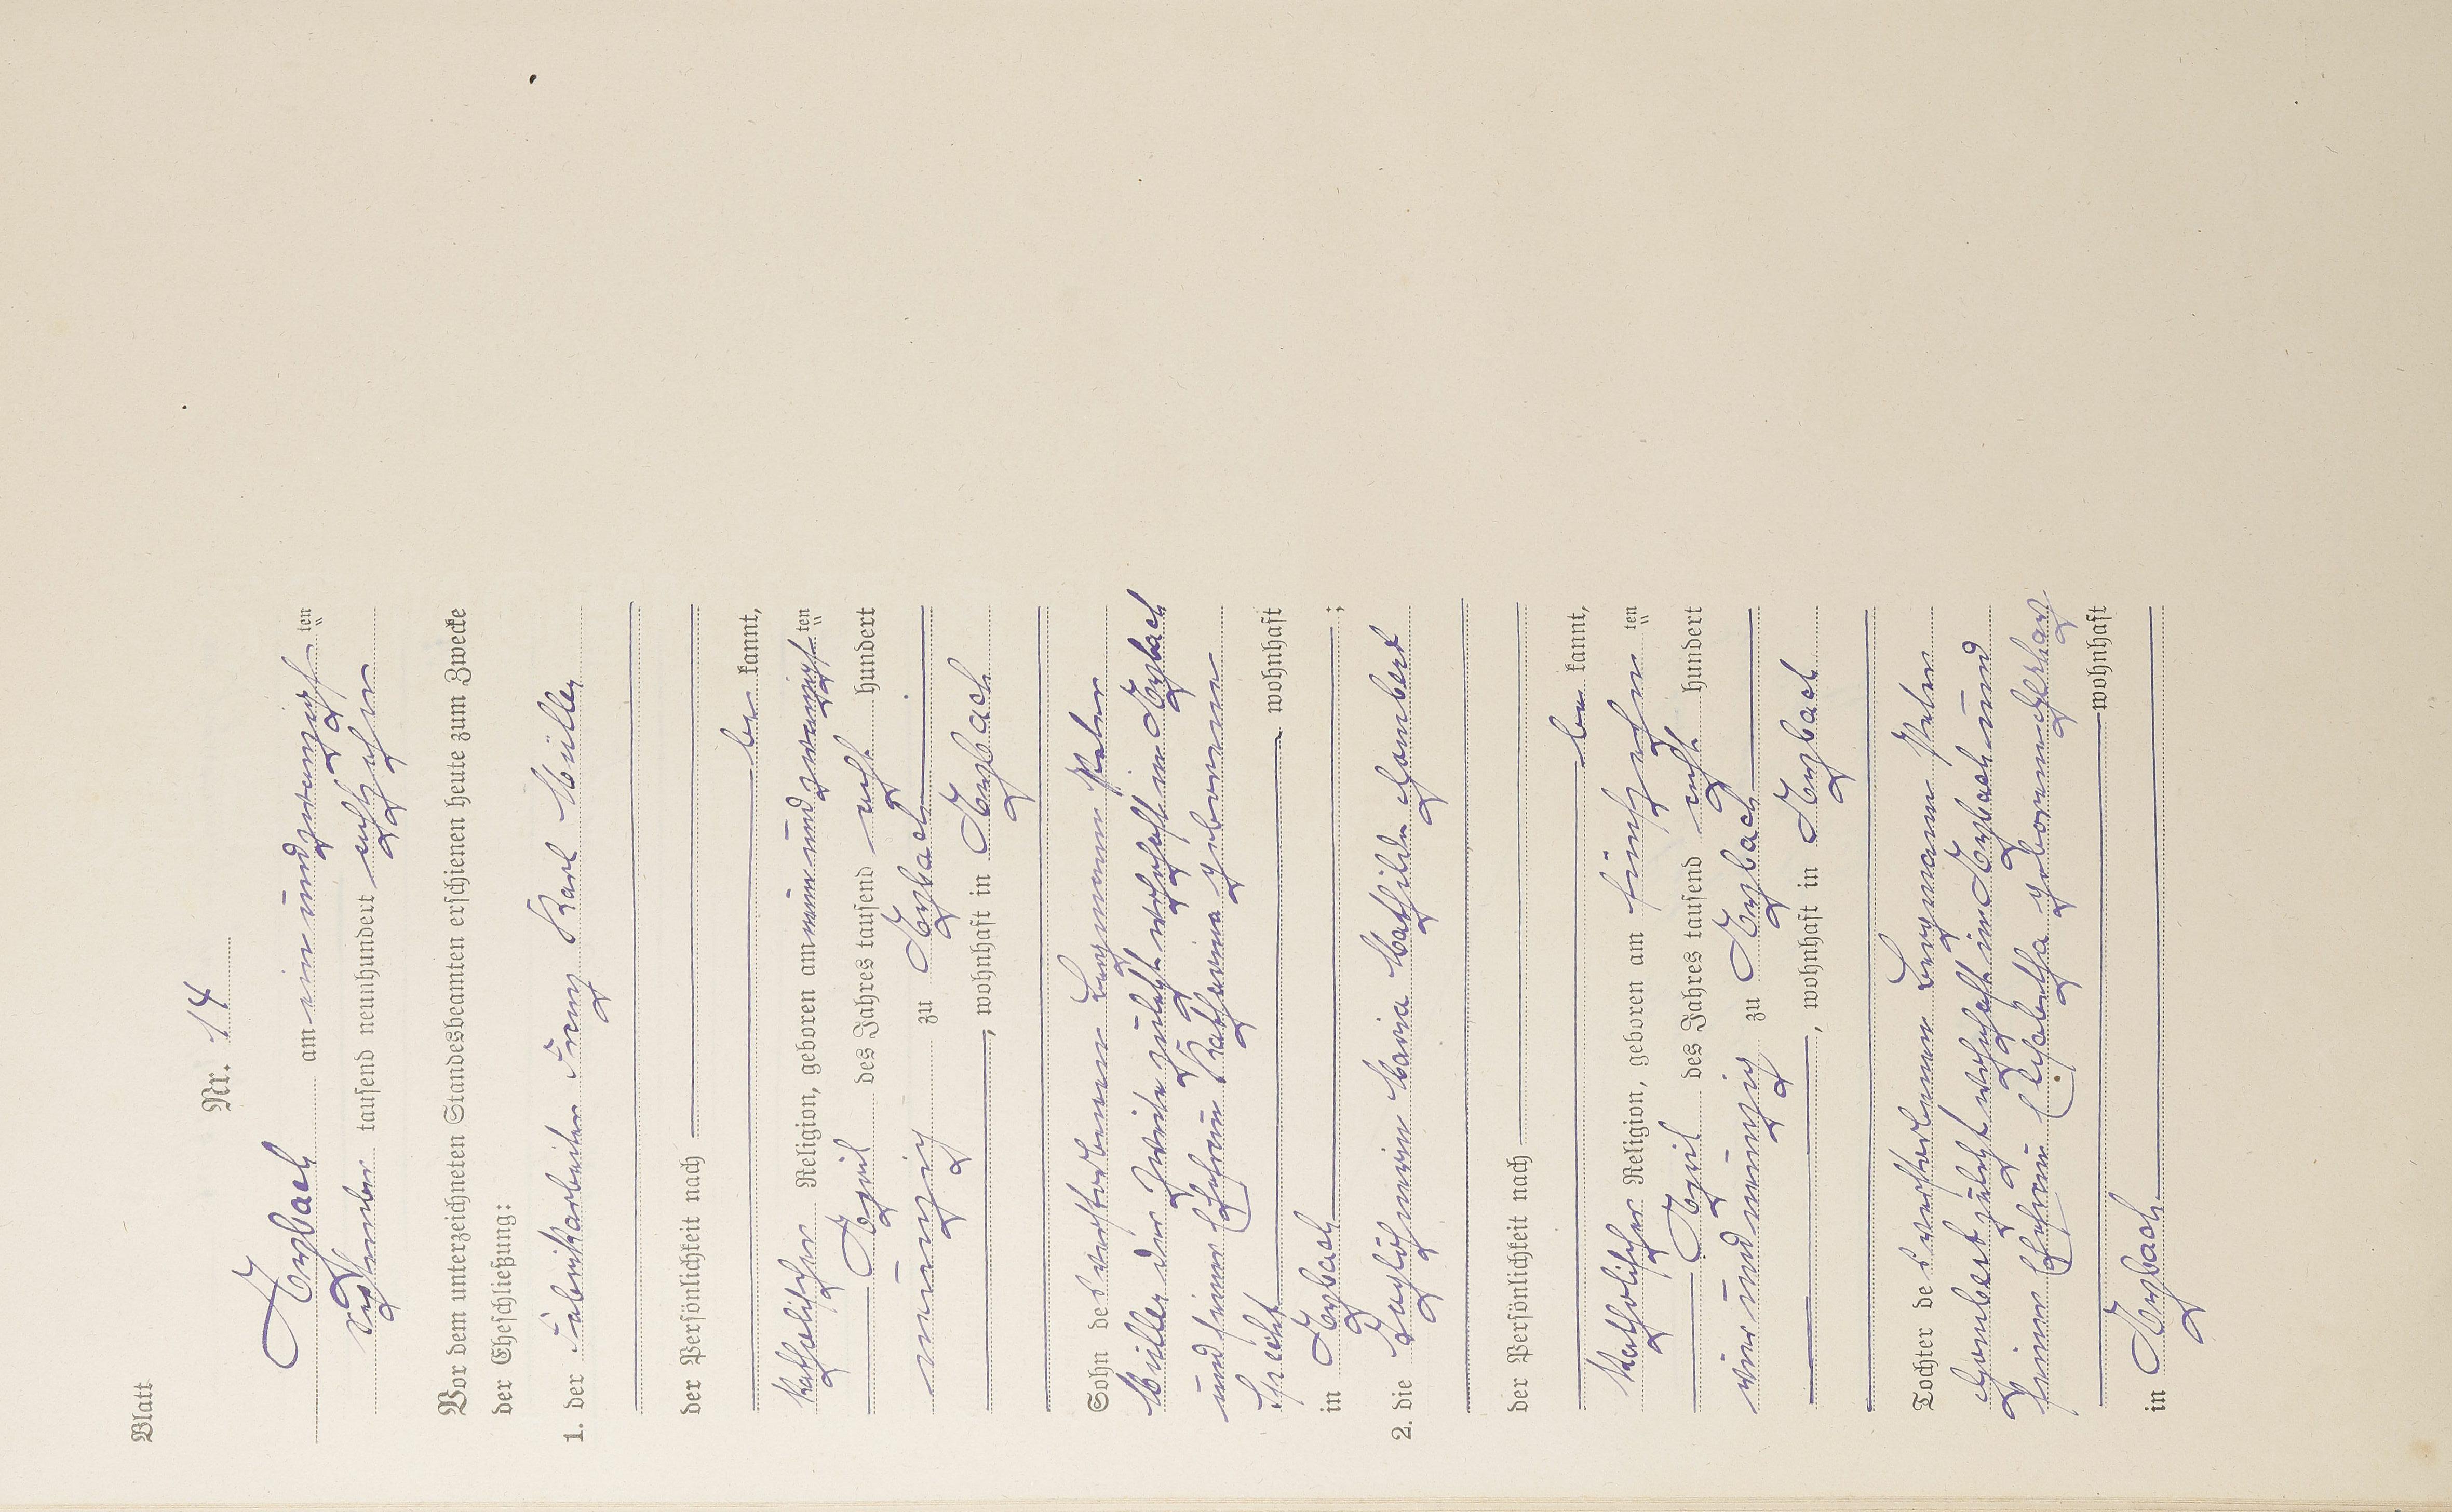 Blatt
Nr. 14
Arzbach am einundzwanzigsten
September tausend neunhundert achtzehn
Vor dem unterzeichneten Standesbeamten erschienen heute zum Zwecke
der Eheschließung:
1. der Fabrikarbeiter Franz Karl Müller
der Persönlichkeit nach
be kannt,
katholischer Religion, geboren am neunundzwanzigsten
April des Jahres tausend acht hundert
neunzig zu Arzbach
, wohnhaft in Arzbach
Sohn des verstorbenen Bergmann Peter
Müller der Zweite zuletzt wohnhaft in Arzbach
und seiner Ehefrau Katharina geborenen
wohnhaft
in Arzbach ;
2. die Taglöhnerin Maria Mathilde Gombert
der Persönlichkeit nach
be kannt,
katholischer Religion, geboren am fünfzehn ten
April des Jahres tausend acht hundert
vierundneunzig zu Arzbach
, wohnhaft in Arzbach
Tochter des verstorbenen Bergmann Peter
Gombert zuletzt wohnhaft in Arzbach und
seiner Ehefrau Elisabetha geborenen
wohnhaft
in Arzbach